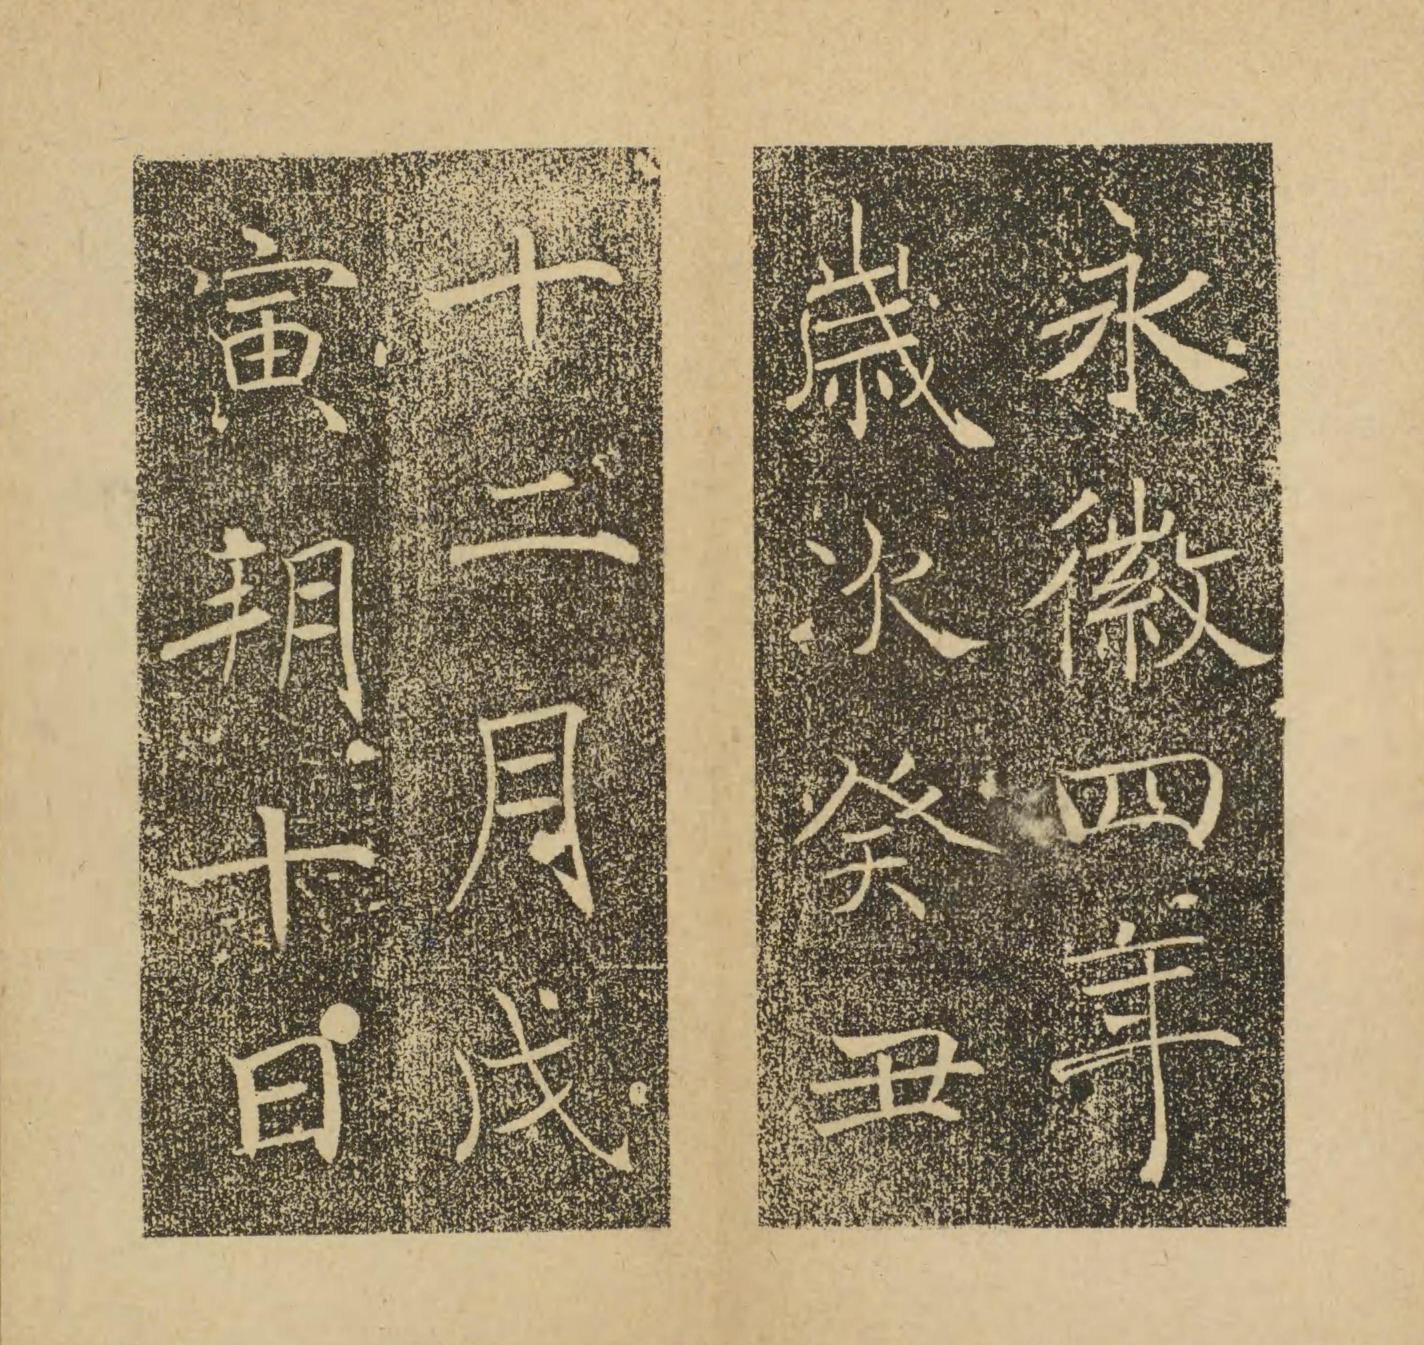 永徽四年
歲次癸丑
十二月戊
寅朔十日